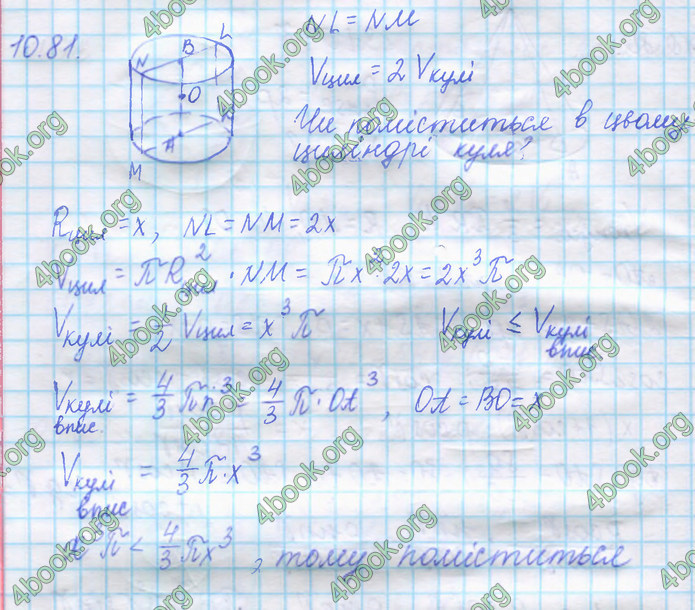 10.81.
NL = NM
N B L
O
A
M
Vцил = 2 Vкулі
Чи поміститься в цьому
циліндрі куля?
Rцил = x, NL = NM = 2x
Vцил = πR²цил · NM = πx² · 2x = 2x³π
Vкулі = 1/2 Vцил = x³π Vкулі ≤ Vкулі впис
Vкулі впис. = 4/3 πr³ = 4/3 π · OA³, OA = BO = x
Vкулі впис = 4/3 π · x³
x³π < 4/3 πx³, тому поміститься
4book.org